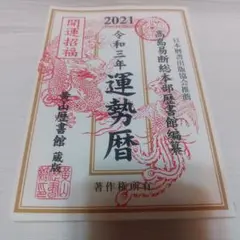 2021
開運招福
日本暦書出版協会推薦
高島易断総本部歴書館編纂
令和三年
運勢暦
黄山歴書館 蔵版
著作権所有